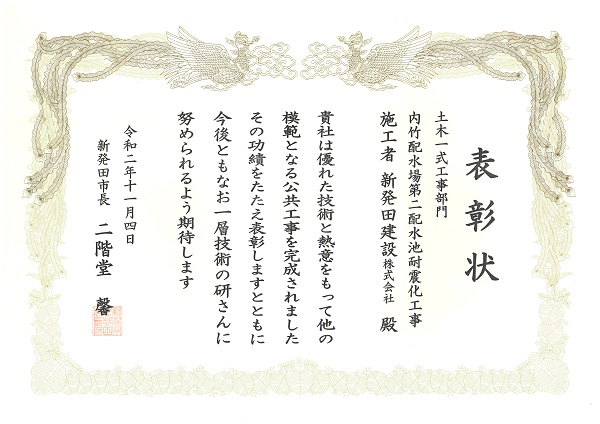 表彰状
土木一式工事部門
内竹配水場第二配水池耐震化工事
施工者 新発田建設株式会社 殿
貴社は優れた技術と熱意をもって他の
模範となる公共工事を完成されました
その功績をたたえ表彰しますとともに
今後ともなお一層技術の研さんに
努められるよう期待します
令和二年十一月四日
新発田市長 二階堂 馨